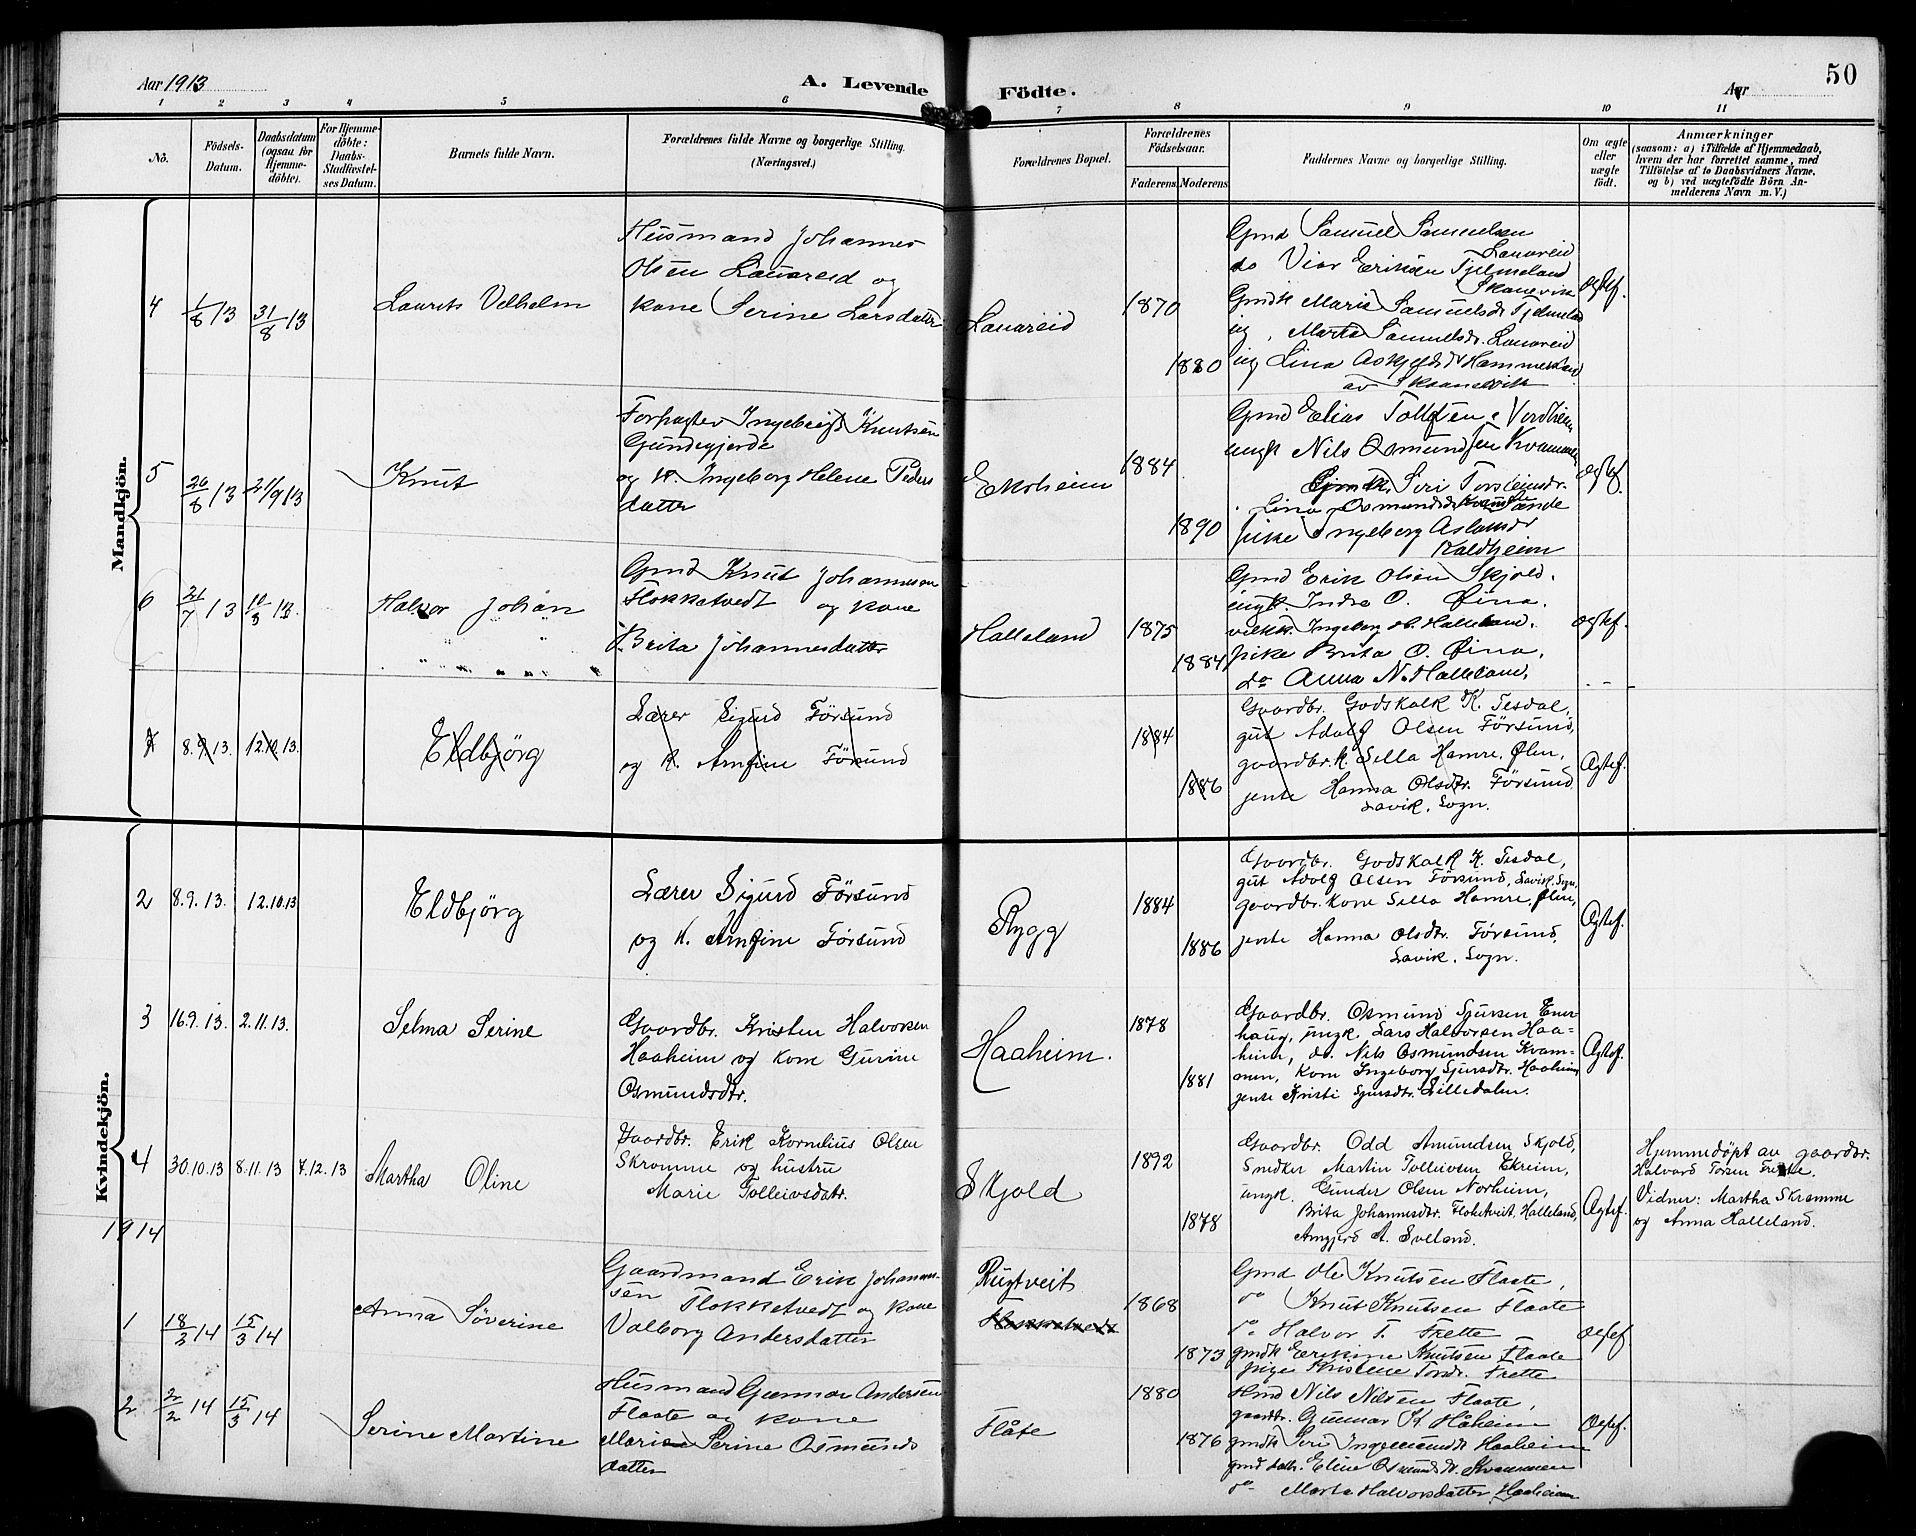 Aar 1913
A. Levende
Födte.
Aar
50
1 2 3 4 5 6 7 8 9 10 11
No.
Födsels-
Datum.
Daabsdatum
(ogsaa for
Hjemme-
döbte).
For Hjemme-
döbte:
Daabs-
Stadfæstel-
ses Datum.
Barnets fulde Navn.
Forældrenes fulde Navne og borgerlige Stilling.
(Næringsvei.)
Forældrenes Bopæl.
Forældrenes
Födselsaar.
Faderens. Moderens.
Faddernes Navne og borgerlige Stilling.
Om ægte
eller
uægte
födt.
Anmærkninger
(saasom: a) i Tilfælde af Hjemmedaab,
hvem der har forrettet samme, med
Tilföielse af to Daabsvidners Navne,
og b) ved uægtefödte Börn An-
melderens Navn m. V.)
Mandkjön.
4
1/8 13
31/8 13
Laurits Vilhelm
Husmand Johannes
Olsen Lauareid og
kone Serine Larsdatter
Lauareid
1870
1880
Gmd Samuel Samuelsen
Lauareid
do Vier Eriksen Tjelmeland
Skanevik
Gmdk Marie Samuelsdr Tjelmeland
Marta Samuelsdr. Lauareid
Lina Askjelsdr Hammersland
av Skaanevik
5
26/8 13
21/9 13
Knut
Forpagter Ingebrigt Knutsen
Gundegjerde
og k. Ingeborg Helene Peders
datter
Ekrheim
1884
1890
Gmd Elias Tollefsen Nordheim
ungk Nils Osmundsen Kvammen
Gmdk. Seri Torsteinsdr.
Lina Osmundsdr Sande
pike Ingeborg Aslamdr
Kaldheim
6
21/7 13
Halvor Johan
Gmd Knut Johannesen
Flokketvedt og kone
Brita Johannesdatter
Halleland
1875
1884
Gmd Erik Olsen Skjold.
ungk. Indre O. Øina.
Ingeborg H. Halleland.
pike Brita O. Øina.
do Anna N. Halleland.
Ægtef.
7
8.9.13.
12.10.13.
Eldbjörg
Lærer Sigurd Försund
og k. Arnfine Försund
1884
1886
Gaardbr. Godskalk K. Tesdal,
gut Adolf Olsen Försund,
gaardbr.k. Silla Hamre, Ølen,
jente Hanna Olsdtr. Försund
Lavik, Sogn.
Ægtef.
Kvindekjön.
2
8.9.13.
12.10.13
Eldbjörg
Lærer Sigurd Försund
og k. Arnfine Försund
Rygg
1884
1886
Gaardbr. Godskalk K. Tesdal,
gut Adolf Olsen Försund, Lavik, Sogn,
gaardbr. kone Silla Hamre, Ølen,
jente Hanna Olsdtr. Försund,
Lavik, Sogn.
Ægtef.
3
16.9.13.
2.11.13.
Selma Serine
Gaardbr. Kristen Halvorsen
Haaheim og kone Gurine
Osmundsdtr.
Haaheim.
1878
1881
Gaardbr. Osmund Sjursen Ener-
haug, ungk. Lars Halvorsen Haa-
heim, do. Nils Osmundsen Kvam-
men, kone Ingeborg Sjursdtr. Haaheim
jente Kristi Sjursdtr. Lilledalen.
Ægtef.
4
30.10.13
8.11.13
7.12.13
Martha Oline
Gaardbr. Erik Kornelius Olsen
Skromme og hustru
Marie Tolleivsdatr.
Skjold
1892
1878
Gaardbr. Odd Amundsen Skjold,
Snedker Martin Tolleivsen Ekreim,
ungk. Gunder Olsen Norheim,
Brita Johannesdtr. Floketveit, Halleland,
Arngjerd A. Sveland.
Ægtef.
Hjemmedøpt av gaardbr.
Halvard Torsen Frette.
Vidner: Martha Skromme
og Anna Halleland.
1914
1
18/2 14
15/3 14
Anna Søverine
Gaardmand Erik Johannes-
sen Flokketvedt og kone
Valborg Andersdatter
Rugtveit
1868
1873
Gmd Ole Knutsen Flaate,
do Knut Knutsen Flaate
do Halvor T. Frette
gmdk Erikine Knutsen Flaate
pige Kristene Torsdr. Frette
2
2/2 14
15/3 14
Serine Martine
Husmand Gunnar Andersen
Flaate og kone
Marie Serine Osmunds
datter
Flåte
1880
1876
Nils Nilsen Flaate,
gaardbr. Gunnar K Håheim
gmdk Seri Ingemundsdr Haaheim
gmd datr. Eline Osmundsdr. Kvammen
do Marta Halvorsdatter Haaheim